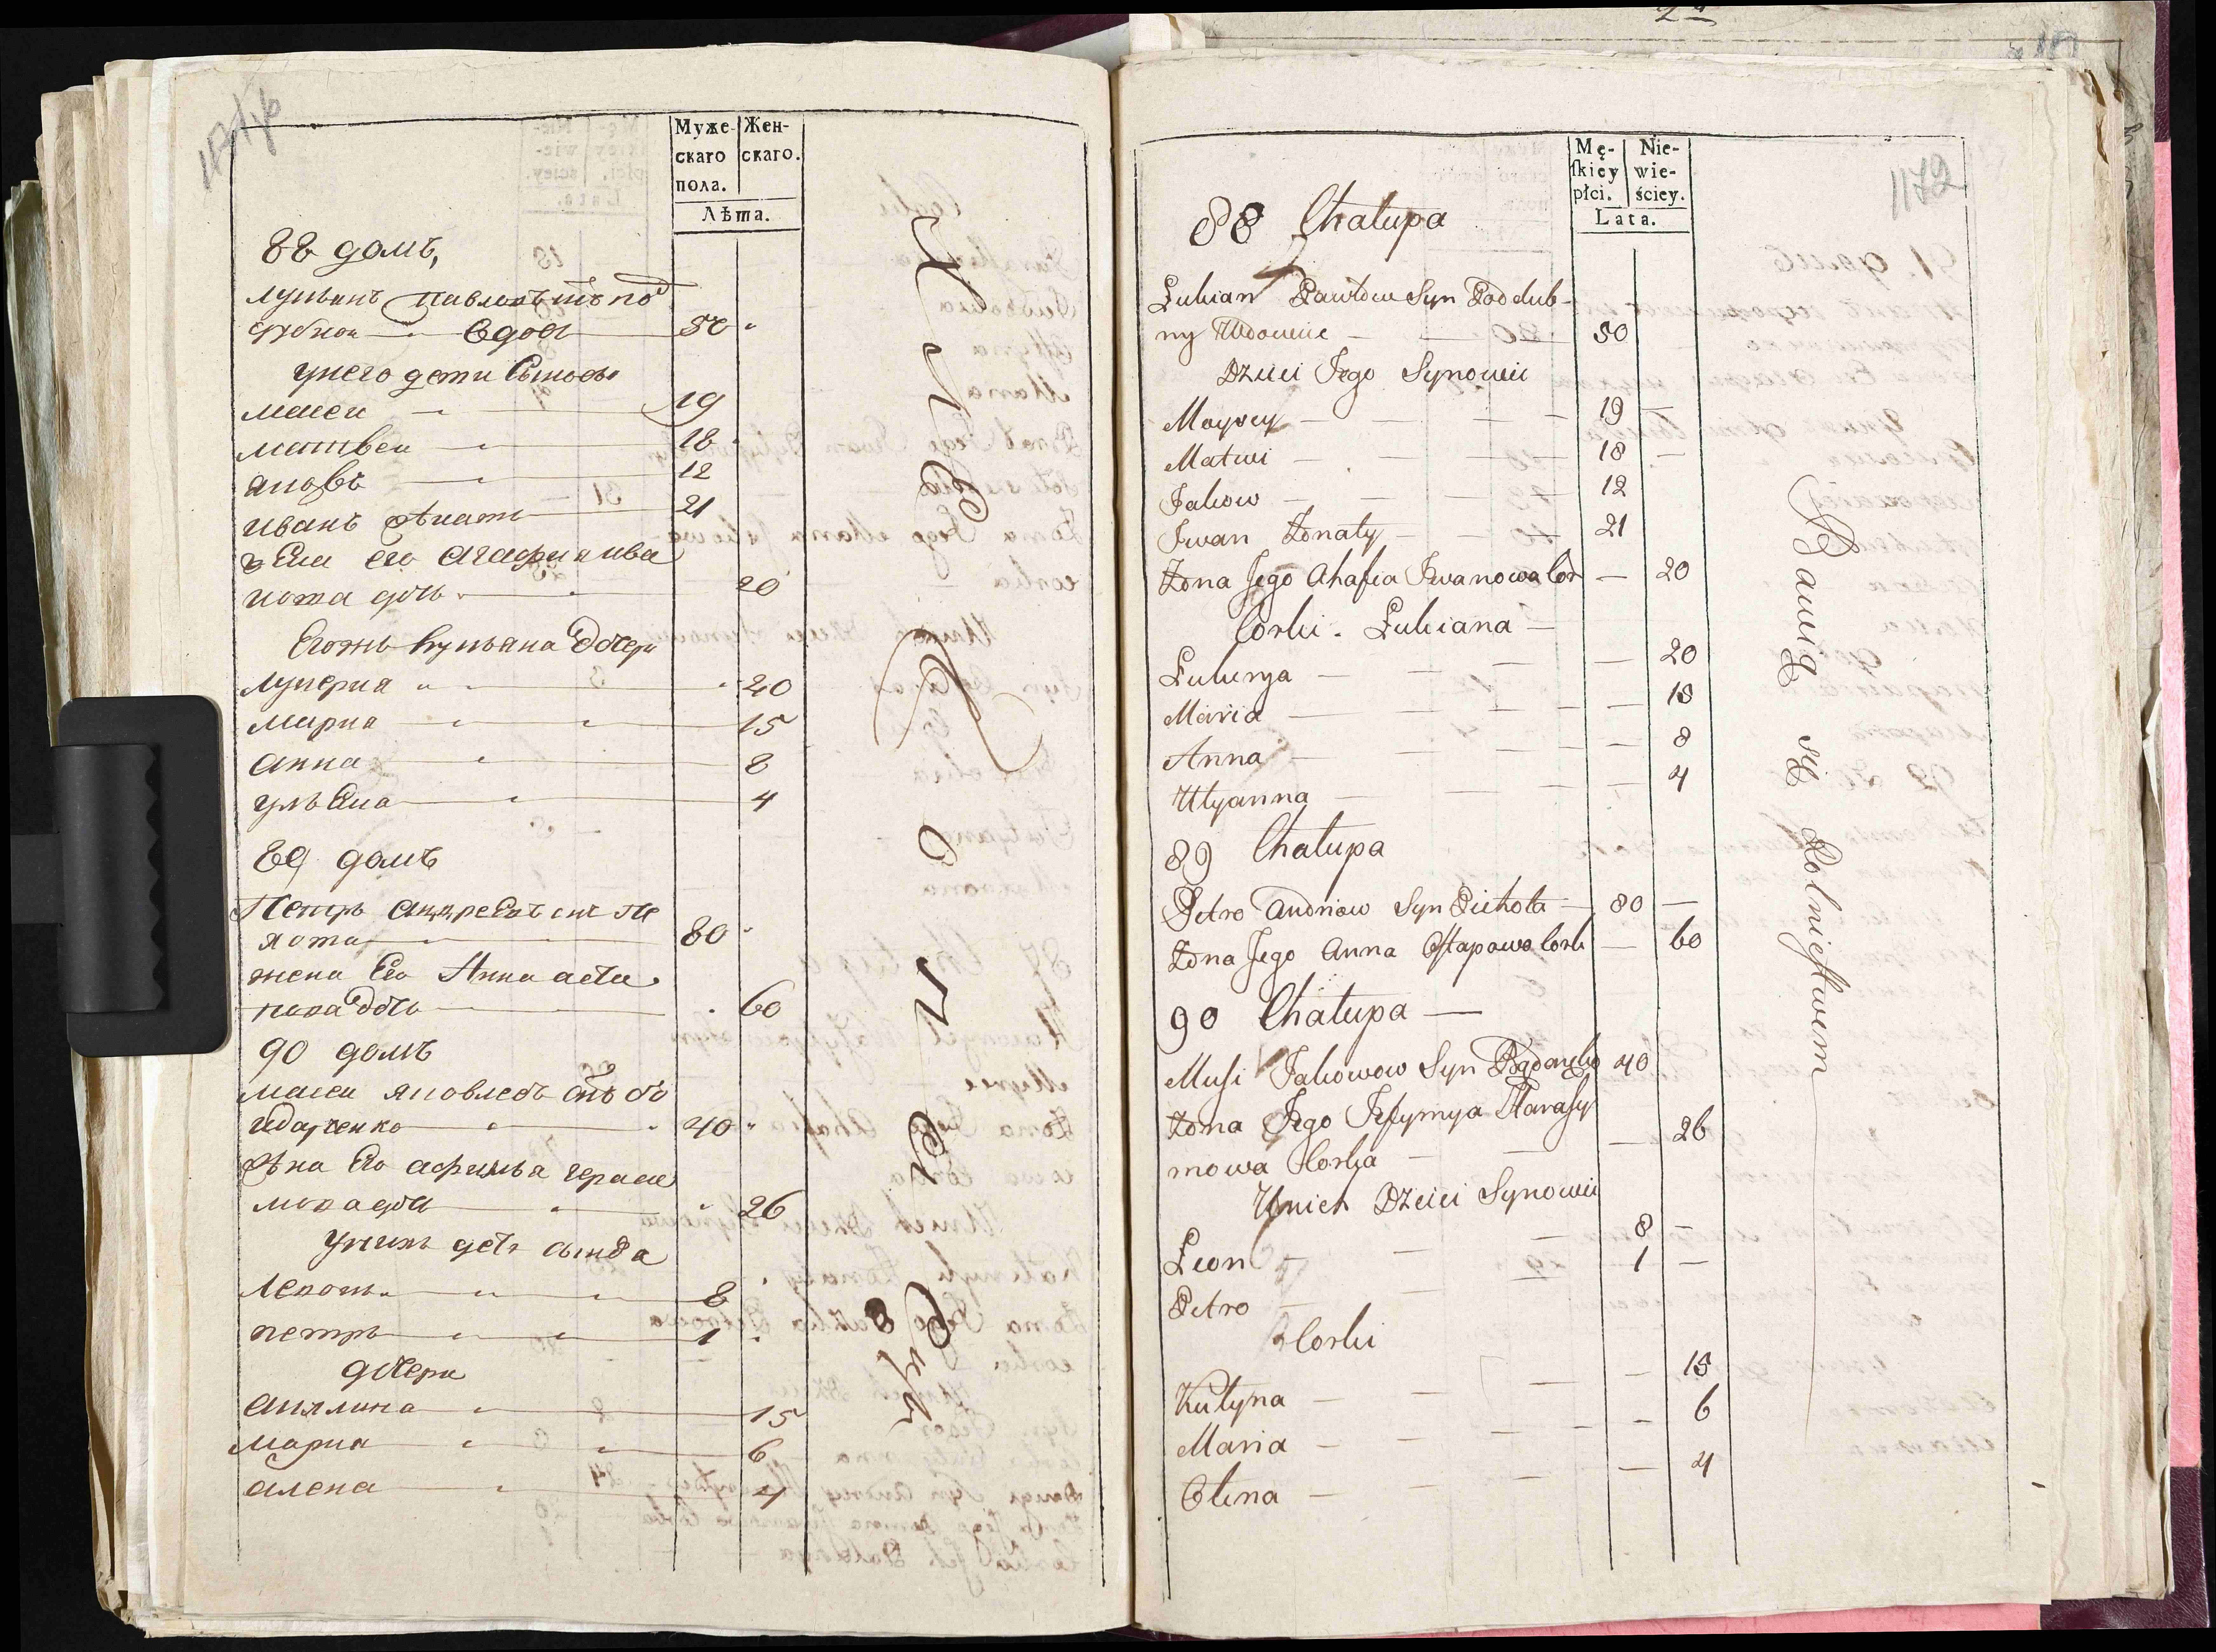 Муже-
скаго
пола.
Жен-
скаго.
Лѣта.
88 домъ,
лукьянъ павловъ снъ под
дубнои вдовъ 50
у него дети Сыновья
масеи 19
матвеи 18
яковъ 12
иванъ женатъ 21
жена его агафия ива
нова дочь 20
Егожъ лукьяна дочери
лукерия 20
мария 15
анна 8
ульяна 4
89 домъ
Петръ андреевъ снъ пе
хота 80
жена Его Анна аста
пова дочь 60
90 домъ
масеи яковлевъ снъ бо
гдаченко 40
жена Его афимья гераси
мова дочь 26
у нихъ дети сынова
Левонъ 8
петръ 1
дочери
акилина 15
мария 6
алена 4
1172
Mę-
ſkiey
płci.
Nie-
wie-
ściey.
Lata.
88 Chałupa
Łukian Pawłow Syn Poddub-
ny Wdowiec — 50
Dzieci Jego Synowie
Moysey — 19 —
Matwi — 18 —
Jakow — 12
Iwan Żonaty — 21
Żona Jego Ahafia Iwanowa Cor — 20
Corki Łukiana —
Łukerya — 20
Maria — 15
Anna — 8
Ulyanna — 4
89 Chałupa
Petro Andriow Syn Pichota — 80 —
Żona Jego Anna Oſtapowa Cork — 60
90 Chałupa —
Musi Jakowow Syn 40
Żona Jego Jefymya Harasy
mowa Corka — 26
U nich Dzieci Synowie
Leon — 8 —
Petro — 1 —
Corki
Kulyna — 15
Maria — 6
Olena — 4
Bawią się Rolnicſtwem